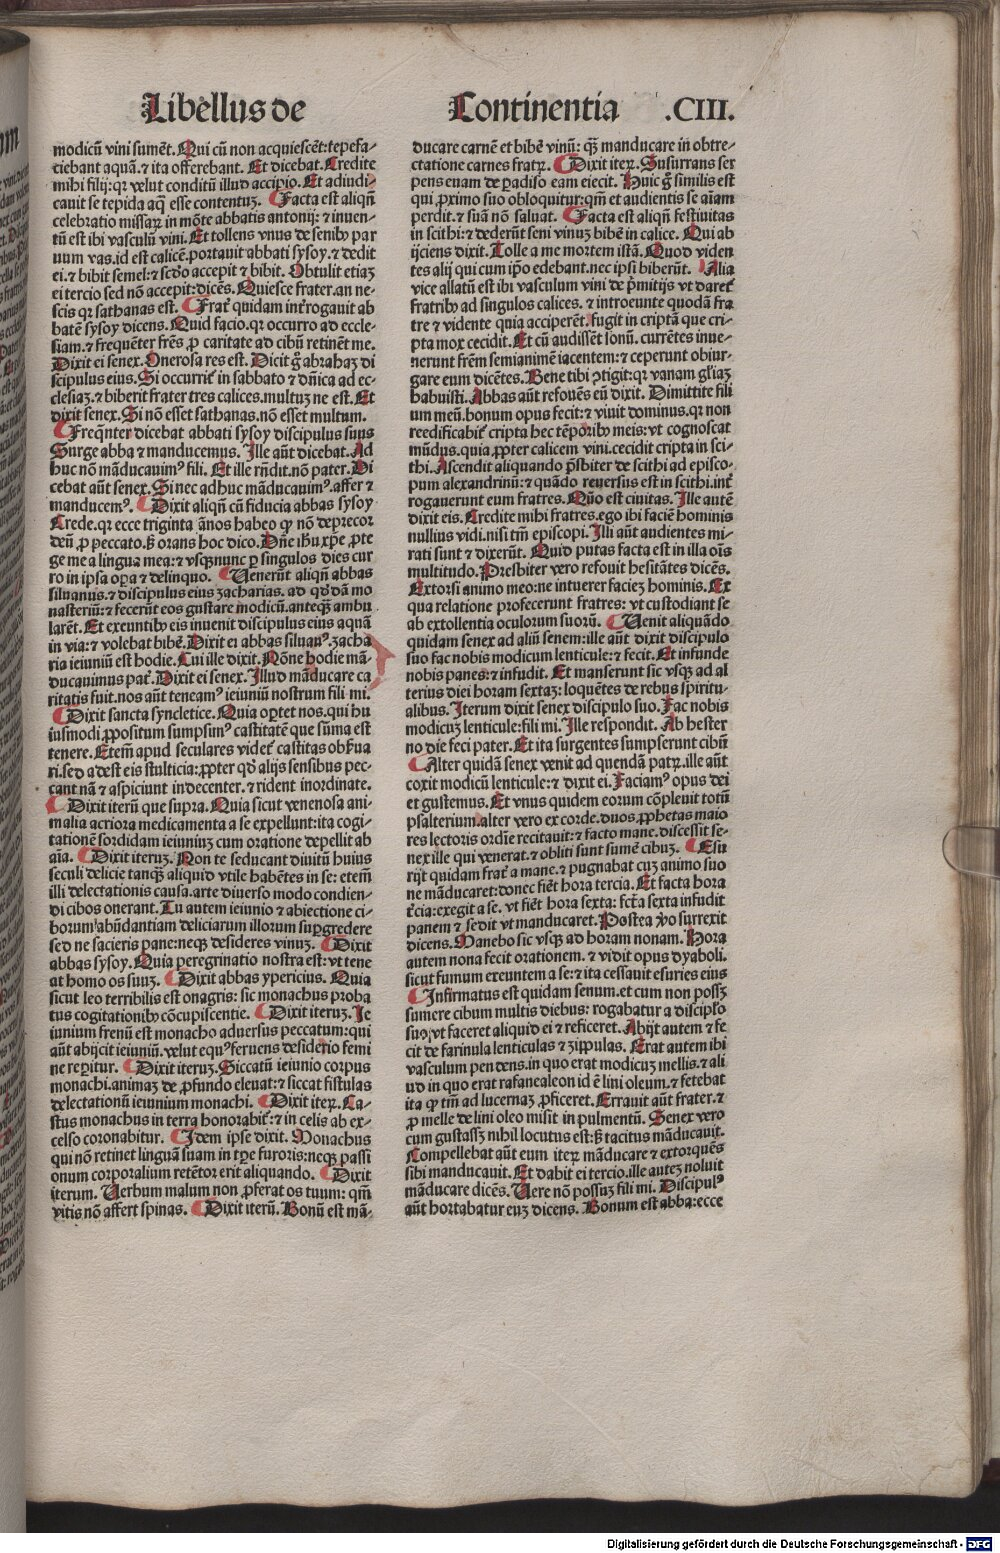 Libellus de
Continentia .CIII.
modicū vini sumēt. Qui cū non acquiescēt: tepefa-
ciebant aquā. ⁊ ita offerebant. Et dicebat. Credite
mihi filij: qꝛ velut conditū illud accipio. Et adiudi-
cauit se tepida aq̄ esse contentuꝫ. Facta est aliqn̄
celebratio missaꝝ in mōte abbatis antonij: ⁊ inuen-
tū est ibi vasculū vini. Et tollens vnus de senibꝰ par
uum vas. id est calicē. portauit abbati sysoy. ⁊ dedit
ei. ⁊ bibit semel: ⁊ scd̄o accepit ⁊ bibit. Obtulit etiaꝫ
ei tercio sed nō accepit: dicēs. Quiesce frater. an ne-
scis qꝛ sathanas est. Frat̄ quidam int̄rogauit ab
batē sysoy dicens. Quid facio. qꝛ occurro ad eccle-
siam. ⁊ frequēter frēs ꝓ caritate ad cibū retinēt me.
Dixit ei senex. Onerosa res est. Dicit g̊ abꝛahaꝫ di
scipulus eius. Si occurrit̄ in sabbato ⁊ dn̄ica ad ec-
clesiaꝫ. ⁊ biberit frater tres calices. multuꝫ ne est. Et
dixit senex. Si nō esset sathanas. nō esset multum.
Freqn̄ter dicebat abbati sysoy discipulus suus
Surge abba ⁊ manducemus. Ille aūt dicebat. Ad
huc nō māducauimꝰ fili. Et ille rn̄dit. nō pater. Di
cebat aūt senex. Si nec adhuc māducauimꝰ. affer ⁊
manducemꝰ. Dixit aliqn̄ cū fiducia abbas sysoy
Crede. qꝛ ecce triginta ānos habeo qꝫ nō deprecor
deū ꝓ peccato. sꝫ orans hoc dico. Dn̄e ihu xp̄e ꝓte
ge me a lingua mea: ⁊ vsqꝫ nunc ꝑ singulos dies cur
ro in ipsa oꝑa ⁊ delinquo. Uenerūt aliqn̄ abbas
siluanus. ⁊ discipulus eius zacharias. ad qd̄dā mo
nasteriū: ⁊ fecerūt eos gustare modicū. anteqꝫ ambu
larēt. Et exeuntibꝰ eis inuenit discipulus eius aquā
in via: ⁊ volebat bibē. Dixit ei abbas siluanꝰ. zacha
ria ieiuniū est hodie. Cui ille dixit. Nōne hodie mā-
ducauimus pat̄. Dixit ei senex. Illud māducare ca
ritatis fuit. nos aūt teneamꝰ ieiuniū nostrum fili mi.
Dixit sancta syncletice. Quia oꝑtet nos. qui hu
iusmodi ꝓpositum sumpsimꝰ castitatē que sūma est
tenere. Etem̄ apud seculares videt̄ castitas obſerua
ri. sed adest eis stulticia: ꝓpter qd̄ alijs sensibus pec-
cant nā ⁊ aspiciunt indecenter. ⁊ rident inordinate.
Dixit iterū que supra. Quia sicut venenosa ani-
malia acriora medicamenta a se expellunt: ita cogi-
tationē sordidam ieiuniuꝫ cum oratione depellit ab
aīa. Dixit iteruꝫ. Non te seducant diuitū huius
seculi delicie tanqꝫ aliquid vtile habētes in se: etem̄
illi delectationis causa. arte diuerso modo condien-
di cibos onerant. Tu autem ieiunio ⁊ abiectione ci-
borumꝰ abūdantiam deliciarum illorum suꝑgredere
sed ne sacieris pane: neqꝫ desideres vinuꝫ. Dixit
abbas sysoy. Quia peregrinatio nostra est: vt tene
at homo os suuꝫ. Dixit abbas ypericius. Quia
sicut leo terribilis est onagris: sic monachus proba
tus cogitationibꝰ cōcupiscentie. Dixit iteruꝫ. Ie
iunium frenū est monacho aduersus peccatum: qui
aūt abijcit ieiuniū. velut equꝰ feruens desiderio femi
ne reꝑitur. Dixit iteruꝫ. Siccatū ieiunio corpus
monachi. animaꝫ de ꝓfundo eleuat: ⁊ siccat fistulas
delectationū ieiunium monachi. Dixit iteꝝ. Ca-
stus monachus in terra honorabit̄: ⁊ in celis ab ex-
celso coronabitur. Idem ipse dixit. Monachus
qui nō retinet linguā suam in tp̄e furoris: neqꝫ passi
onum corporalium retētor erit aliquando. Dixit
iterum. Uerbum malum non ꝓferat os tuum: qm̄
vitis nō affert spinas. Dixit iterū. Bonū est mā-
ducare carnē et bibē vinū: qꝫ manducare in obtre-
ctatione carnes fratꝝ. Dixit iteꝝ. Susurrans ser
pens euam de ꝑadiso eam eiecit. Huic g̊ similis est
qui ꝓximo suo obloquitur: qm̄ et audientis se aīam
perdit. ⁊ suā nō saluat. Facta est aliqn̄ festiuitas
in scithi: ⁊ dederūt seni vinuꝫ bibē in calice. Qui ab
ijciens dixit. Tolle a me mortem istā. Quod viden
tes alij qui cum ip̄o edebant. nec ipsi biberūt. Alia
vice allatū est ibi vasculum vini de p̄mitijs vt daret̄
fratribꝰ ad singulos calices. ⁊ introeunte quodā fra
tre ⁊ vidente quia acciperēt. fugit in criptā que cri-
pta mox cecidit. Et cū audissēt sonū. currētes inue-
nerunt frēm semianimē iacentem: ⁊ ceperunt obiur-
gare eum dicētes. Bene tibi ꝯtigit: qꝛ vanam gl̄iaꝫ
habuisti. Abbas aūt refouēs eū dixit. Dimittite fili
um meū. bonum opus fecit: ⁊ viuit dominus. qꝛ non
reedificabit̄ cripta hec tēporibꝰ meis: vt cognoscat
mūdus. quia ꝓpter calicem vini. cecidit cripta in sci-
thi. Ascendit aliquando p̄sbiter de scithi ad episco-
pum alexandrinū: ⁊ quādo reuersus est in scithi. int̄
rogauerunt eum fratres. Quō est ciuitas. Ille autē
dixit eis. Credite mihi fratres. ego ibi faciē hominis
nullius vidi. nisi tm̄ episcopi. Illi aūt audientes mi-
rati sunt ⁊ dixerūt. Quid putas facta est in illa oīs
multitudo. Presbiter vero refouit hesitātes dicēs.
Extorsi animo meo: ne intuerer facieꝫ hominis. Ex
qua relatione profecerunt fratres: vt custodiant se
ab extollentia oculorum suorū. Uenit aliquādo
quidam senex ad aliū senem: ille aūt dixit discipulo
suo fac nobis modicum lenticule: ⁊ fecit. Et infunde
nobis panes: ⁊ infudit. Et manserunt sic vsqꝫ ad al
terius diei horam sextaꝫ: loquētes de rebus spiritu-
alibus. Iterum dixit senex discipulo suo. Fac nobis
modicuꝫ lenticule: fili mi. Ille respondit. Ab hester
no die feci pater. Et ita surgentes sumpserunt cibū
Alter quidā senex venit ad quendā patꝝ. ille aūt
coxit modicū lenticule: ⁊ dixit ei. Faciamꝰ opus dei
et gustemus. Et vnus quidem eorum cōpleuit totū
psalterium. alter vero ex corde. duos ꝓphetas maio
res lectoris ordīe recitauit: ⁊ facto mane. discessit se-
nex ille qui venerat. ⁊ obliti sunt sumē cibuꝫ. Esu
rijt quidam frat̄ a mane. ⁊ pugnabat cuꝫ animo suo
ne māducaret: donec fiēt hora tercia. Et facta hora
t̄cia: exegit a se. vt fiēt hora sexta: fctā sexta infudit
panem ⁊ sedit vt manducaret. Postea ꝟo surrexit
dicens. Manebo sic vsqꝫ ad horam nonam. Hora
autem nona fecit orationem. ⁊ vidit opus dyaboli.
sicut fumum exeuntem a se: ⁊ ita cessauit esuries eius
Infirmatus est quidam senum. et cum non possꝫ
sumere cibum multis diebus: rogabatur a discipl̄o
suo: vt faceret aliquid ei ⁊ reficeret. Abijt autem ⁊ fe
cit de farinula lenticulas ⁊ zippulas. Erat autem ibi
vasculum pendens. in quo erat modicuꝫ mellis. ⁊ ali
ud in quo erat rafanealeon id ē lini oleum. ⁊ fetebat
ita qꝫ tm̄ ad lucernaꝫ ꝓficeret. Errauit aūt frater. ⁊
ꝓ melle de lini oleo misit in pulmentū. Senex vero
cum gustassꝫ nihil locutus est: sꝫ tacitus māducauit.
Compellebat aūt eum iteꝝ māducare ⁊ extorquēs
sibi manducauit. Et dabit ei tercio. ille auteꝫ noluit
māducare dicēs. Uere nō possuꝫ fili mi. Discipulꝰ
aūt hortabatur euꝫ dicens. Bonum est abba: ecce
Digitalisierung gefördert durch die Deutsche Forschungsgemeinschaft - DFG